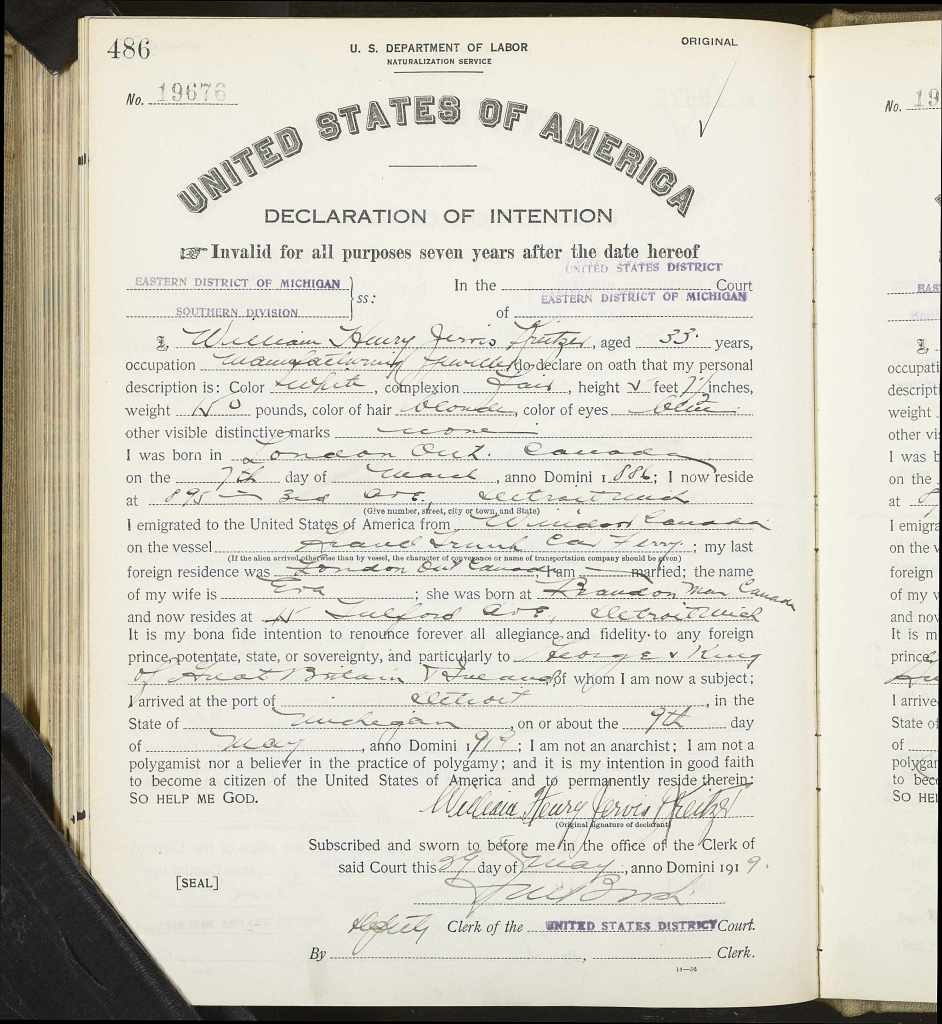 486
U. S. DEPARTMENT OF LABOR
NATURALIZATION SERVICE
ORIGINAL
No. 19676
UNITED STATES OF AMERICA
DECLARATION OF INTENTION
☞ Invalid for all purposes seven years after the date hereof
EASTERN DISTRICT OF MICHIGAN
SOUTHERN DIVISION
ss:
In the UNITED STATES DISTRICT Court
of EASTERN DISTRICT OF MICHIGAN
I, William Henry Jervis Kreitzer, aged 33 years,
occupation Manufacturing Jeweller, do declare on oath that my personal
description is: Color White, complexion Fair, height 5 feet 7 inches,
weight 150 pounds, color of hair blonde, color of eyes blue
other visible distinctive marks none
I was born in London Ont. Canada
on the 7th day of March, anno Domini 1886; I now reside
at 895 - 3rd Ave, Detroit Mich
(Give number, street, city or town, and State)
I emigrated to the United States of America from Windsor Canada
on the vessel Grand Trunk Car Ferry; my last
(If the alien arrived otherwise than by vessel, the character of conveyance or name of transportation company should be given)
foreign residence was London Ont Canada, I am married; the name
of my wife is Eva; she was born at Brandon Man Canada
and now resides at Ave, Detroit Mich
It is my bona fide intention to renounce forever all allegiance and fidelity to any foreign
prince, potentate, state, or sovereignty, and particularly to George V King
of Great Britain & Ireland, of whom I am now a subject;
I arrived at the port of Detroit, in the
State of Michigan, on or about the 9th day
of May, anno Domini 191; I am not an anarchist; I am not a
polygamist nor a believer in the practice of polygamy; and it is my intention in good faith
to become a citizen of the United States of America and to permanently reside therein:
SO HELP ME GOD.
William Henry Jervis Kreitzer
(Original signature of declarant)
Subscribed and sworn to before me in the office of the Clerk of
said Court this 29 day of May, anno Domini 1919.
[SEAL]
Deputy Clerk of the UNITED STATES DISTRICT Court.
By , Clerk.
14—54
No. 19